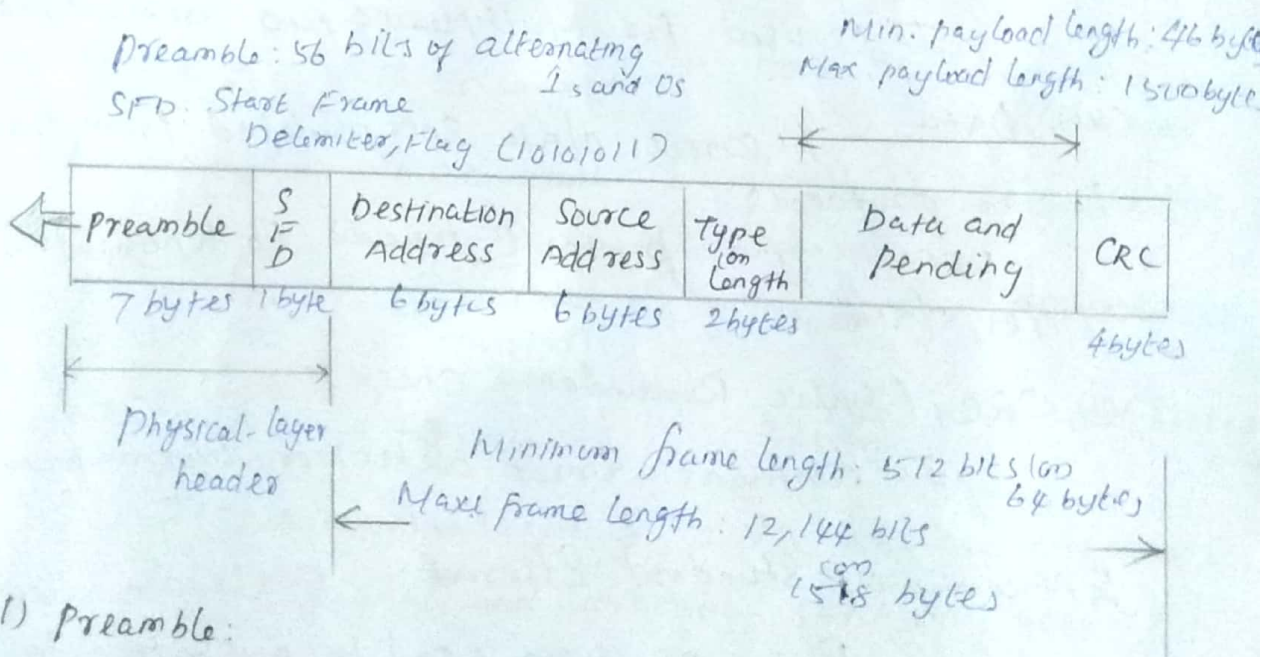 Preamble: 56 bits of alternating
1s and 0s
SFD: Start Frame
Delemiter, Flag (10101011)
Min. payload length: 46 byte
Max payload length: 1500 byte
Preamble
SFD
Destination
Address
Source
Address
Type
(or)
Length
Data and
Pending
CRC
7 bytes 1 byte 6 bytes 6 bytes 2 bytes
4 bytes
Physical-layer
header
Minimum frame length: 512 bits (or)
64 bytes
Max frame length: 12,144 bits
(or)
1518 bytes
1) Preamble: